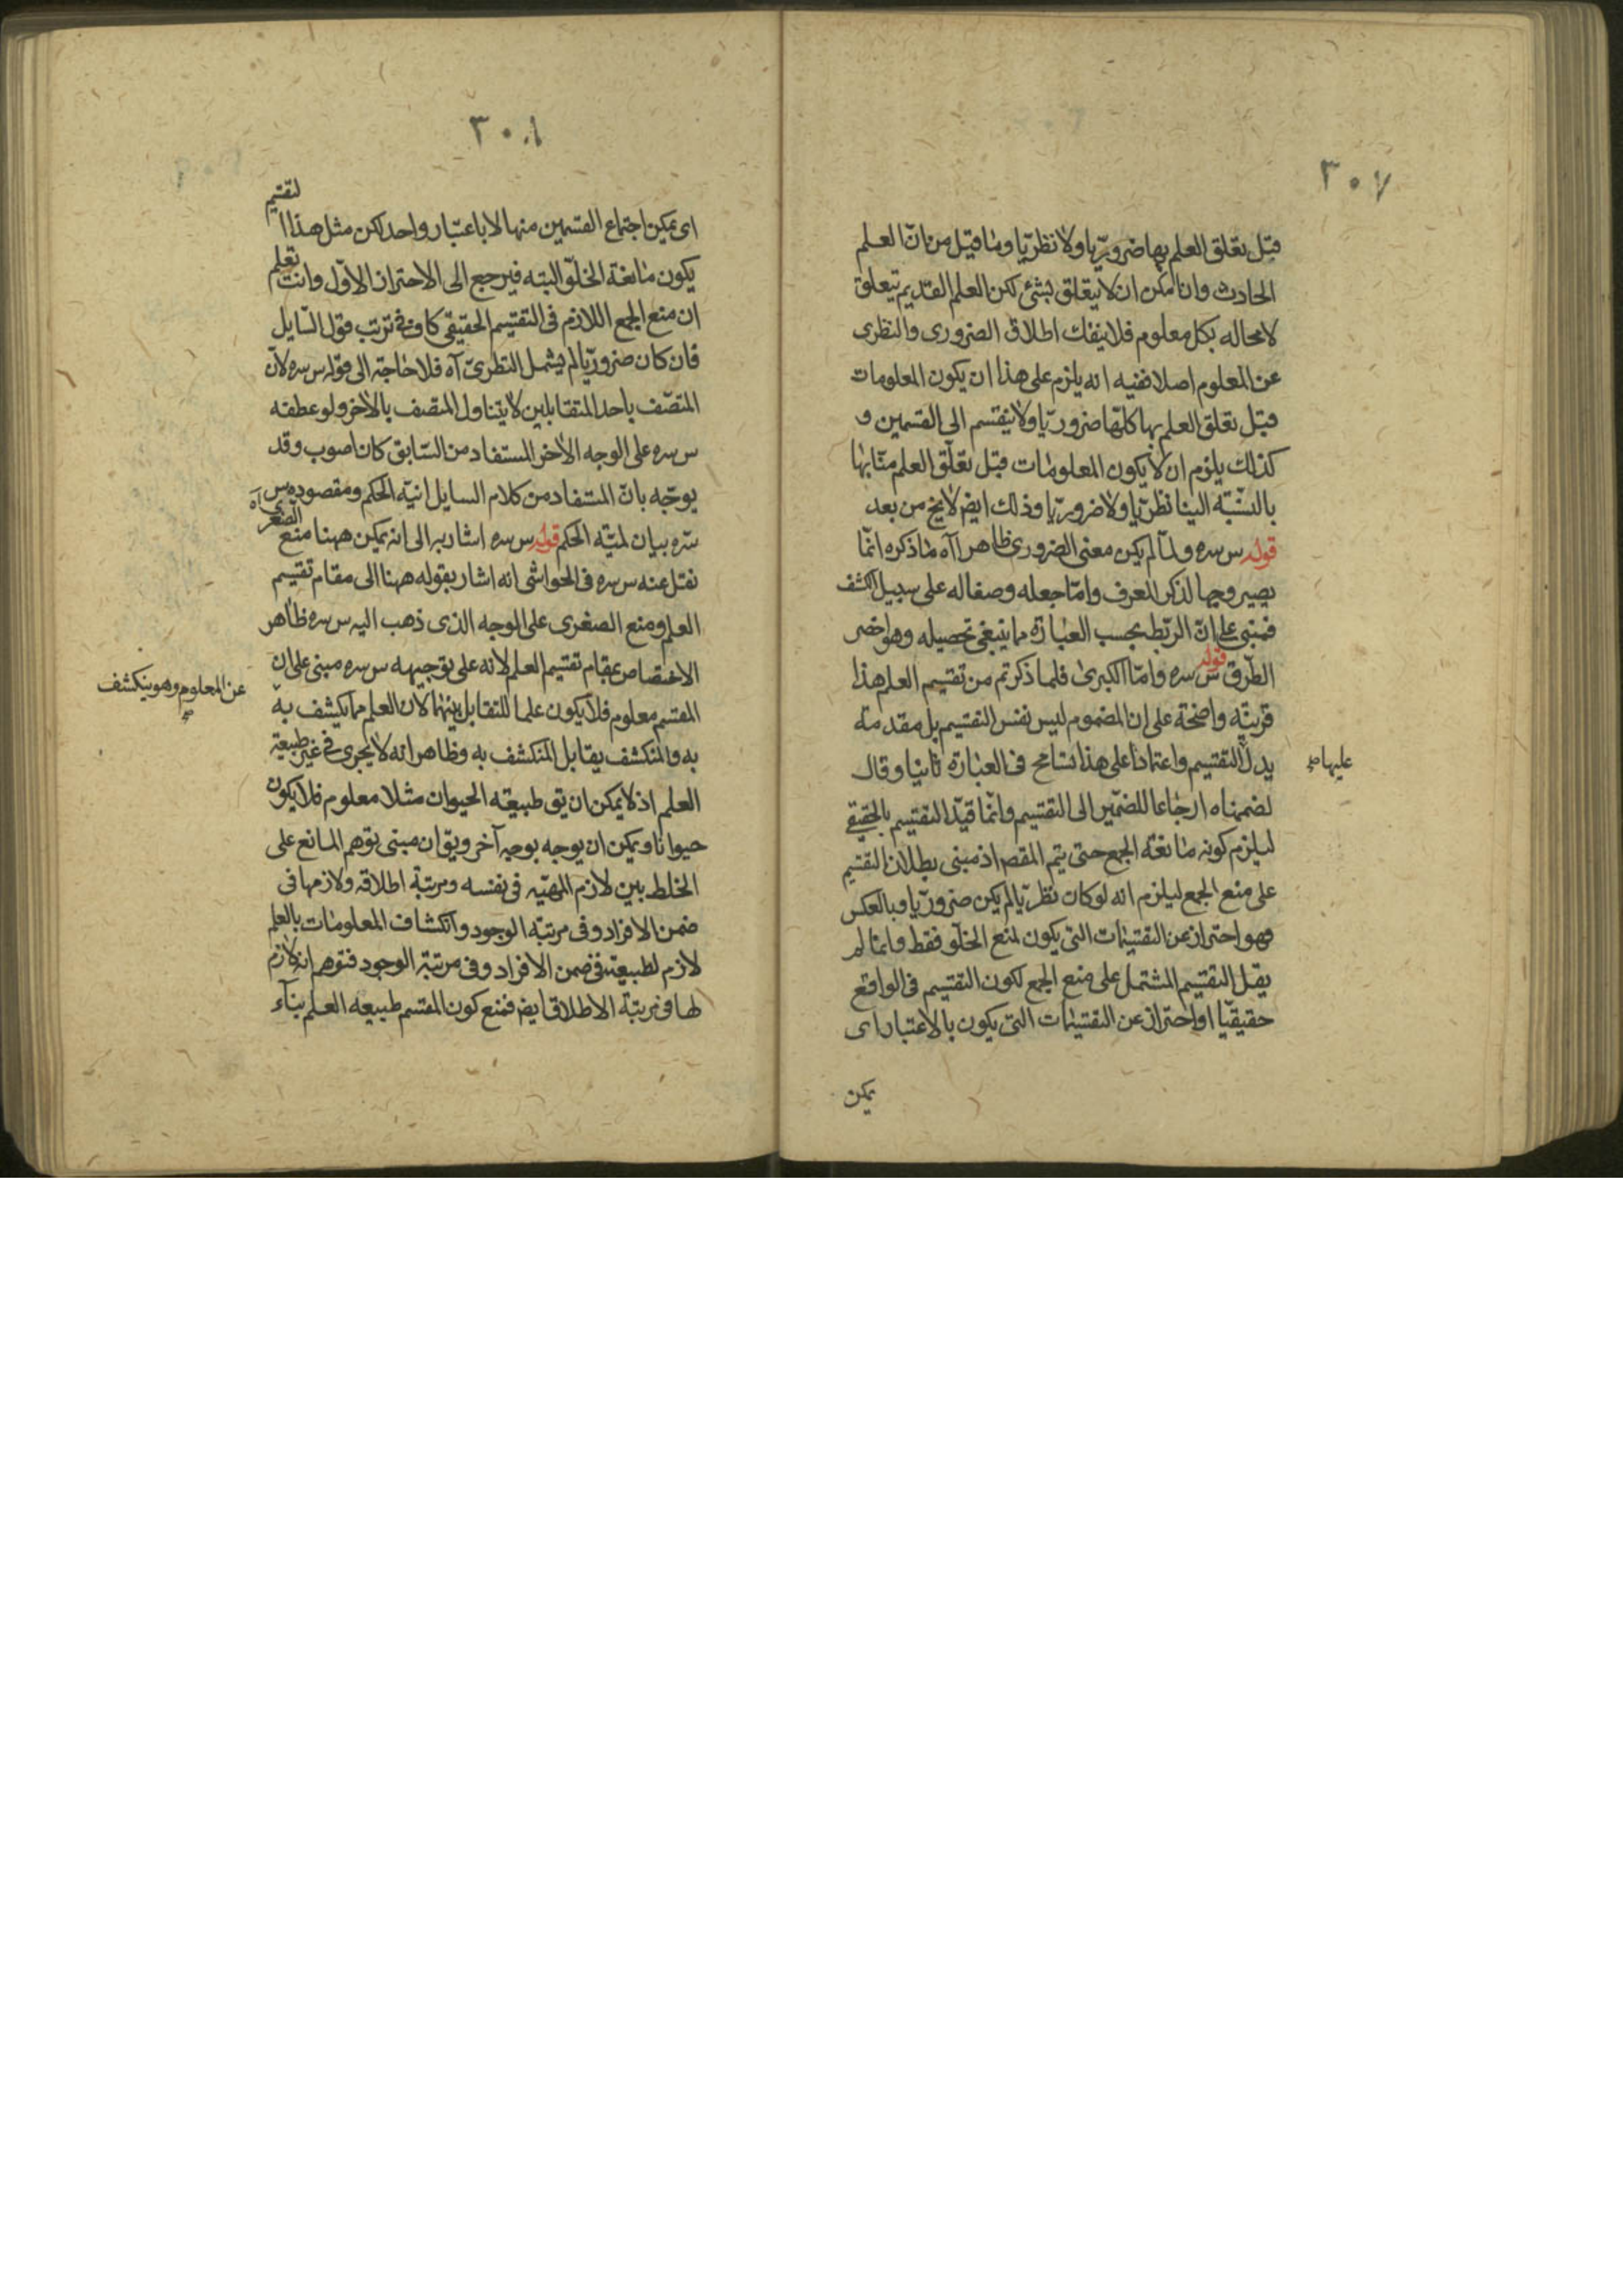 ٣٠٧
قبل تعلق العلم بها ضروريّا ولا نظريّا وما قيل من انّ العلم
الحادث وان امكن ان لا يتعلق بشئ لكن العلم القديم يتعلق
لا محاله بكل معلوم فلا ينفك اطلاق الضرورى والنظرى
عن المعلوم اصلا ففيه انه يلزم على هذا ان يكون المعلومات
قبل تعلق العلم بها كلّها ضروريّا ولا ينقسم الى القسمين و
كذلك يلزم ان لا يكون المعلومات قبل تعلّق العلم منّا بها
بالنسّبة الينا نظريّا ولا ضروريّا وذلك ايض لا يخ من بعد
قوله س سره ولمّا لم يكن معنى الضرورى ظاهرا آه ما ذكره انّما
يصير وجها لذكر المعرف وامّا جعله وصفا له على سبيل الكشف
فمبنى على انّ الربّط بحسب العبارة مما ينبغى تحصيله وهو اخصر
الطّرق قوله س سره وامّا الكبرى فلما ذكرتم من تقسيم العلم هذا
قرينة واضحة على ان المضموم ليس نفس التقسيم بل مقدمة
يدلّ التقسيم واعتمادا على هذا تسامح فى العبارة ثانيا وقال
عليها صح
لضممناه ارجاعا للضمّير الى التقسيم وانّما قيّد التقسيم بالحقيقى
ليلزم كونه مانعة الجمع حتى يتم المقص اذ مبنى بطلان التقسيم
على منع الجمع ليلزم انه لو كان نظريّا لم يكن ضروريّا وبالعكس
وهو احتراز عن التقسيمات التى يكون لمنع الخلّو فقط وانما لم
يقل التقسيم المشتمل على منع الجمع لكون التقسيم فى الواقع
حقيقيّا او احتراز عن التقسيمات التى يكون بالاعتبار اى
يمكن
٣٠٨
اى يمكن اجتماع القسمين منها لا باعتبار واحد لكن مثل هذا التقسيم
يكون مانعة الخلّو البته فيرجع الى الاحتراز الاوّل وانت تعلم
ان منع الجمع اللازم فى التقسيم الحقيقى كاف فى ترتب قول السّايل
فان كان ضروريّا لم يشمل النظرىّ آه فلا حاجة الى قوله س سره لانّ
المتصّف باحد المتقابلين لا يتناول المتصف بالاخر ولو عطفه
س سره على الوجه الاخر المستفاد من السّابق كان اصوب وقد
يوجّه بانّ المستفاد من كلام السايل انيّة الحكم ومقصوده س
سّره بيان لميّة الحكم قوله س سره اشار به الى انه يمكن ههنا منع الصغرى آه
نقل عنه س سره فى الحواشى انه اشار بقوله ههنا الى مقام تقسيم
العلم ومنع الصغرى على الوجه الذى ذهب اليه س سره ظاهر
الاختصاص بمقام تقسيم العلم لانه على توجيهه س سره مبنى على ان
المقسم معلوم فلا يكون علما للتقابل بينهما لان العلم ما ينكشف به
عن المعلوم وهو ينكشف صح
به والمنكشف يقابل المنكشف به وظاهر انه لا يجرى فى غير طبيعة
العلم اذ لا يمكن ان يق طبيعة الحيوان مثلا معلوم فلا يكون
حيوانا ويمكن ان يوجه بوجه آخر ويق ان مبنى توهم المانع على
الخلط بين لازم المهيّة فى نفسه ومرتبة اطلاقه ولازمها فى
ضمن الافراد وفى مرتبة الوجود وانكشاف المعلومات بالعلم
لازم لطبيعته فى ضمن الافراد وفى مرتبة الوجود فتوهم انه لازم
لها فى مرتبة الاطلاق ايض فمنع كون المقسم طبيعة العلم بناء